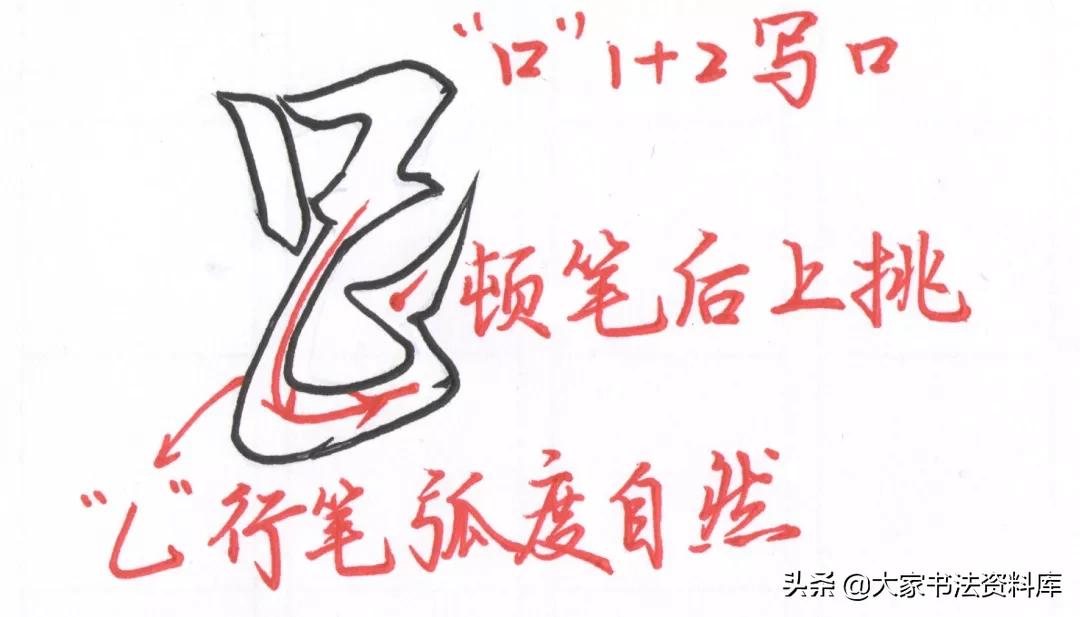 “口”1+2写口
顿笔后上挑
“乚”行笔弧度自然
头条 @大家书法资料库